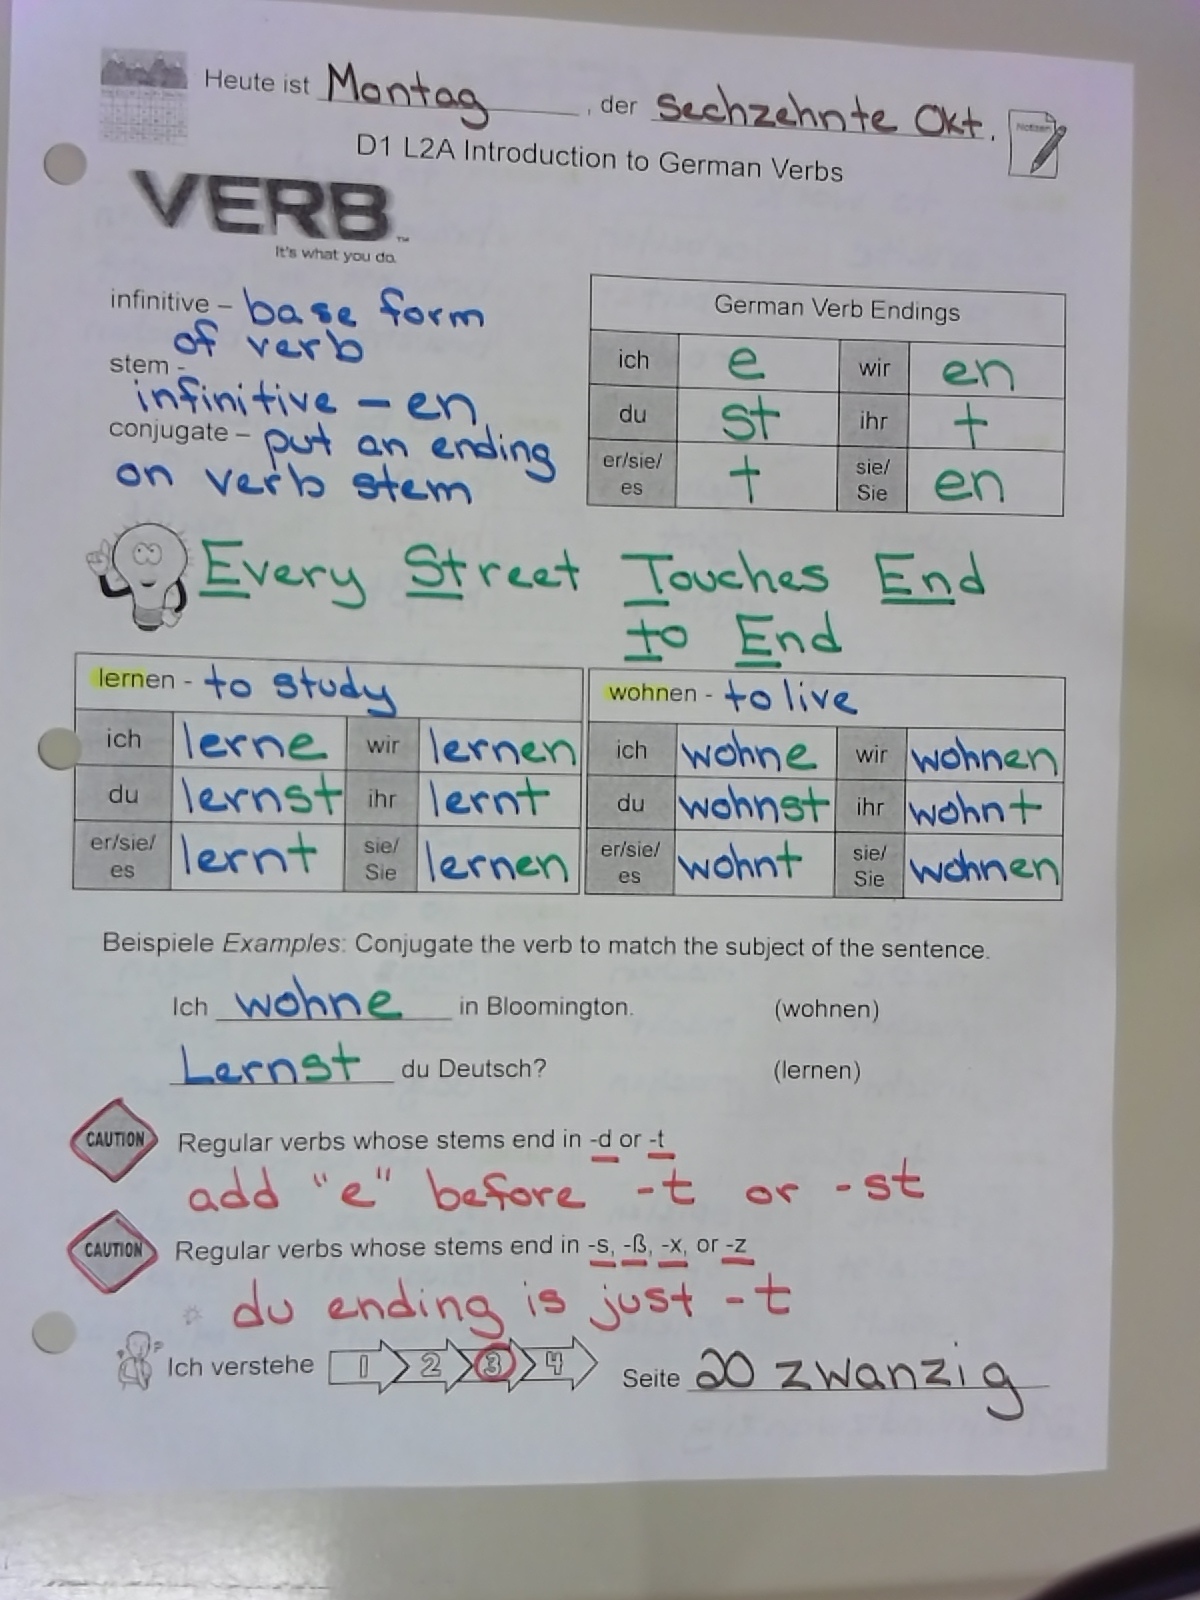 Heute ist Montag, der sechzehnte Okt.
Notizen
D1 L2A Introduction to German Verbs
VERB™
It's what you do.
infinitive – base form
of verb
stem -
infinitive – en
conjugate – put an ending
on verb stem
German Verb Endings
ich e wir en
du st ihr t
er/sie/es t sie/Sie en
Every Street Touches End
to End
lernen - to study
ich lerne wir lernen
du lernst ihr lernt
er/sie/es lernt sie/Sie lernen
wohnen - to live
ich wohne wir wohnen
du wohnst ihr wohnt
er/sie/es wohnt sie/Sie wohnen
Beispiele Examples: Conjugate the verb to match the subject of the sentence.
Ich wohne in Bloomington. (wohnen)
Lernst du Deutsch? (lernen)
CAUTION Regular verbs whose stems end in -d or -t
add "e" before -t or -st
CAUTION Regular verbs whose stems end in -s, -ß, -x, or -z
* du ending is just -t
Ich verstehe 1 2 3 4 Seite 20 zwanzig